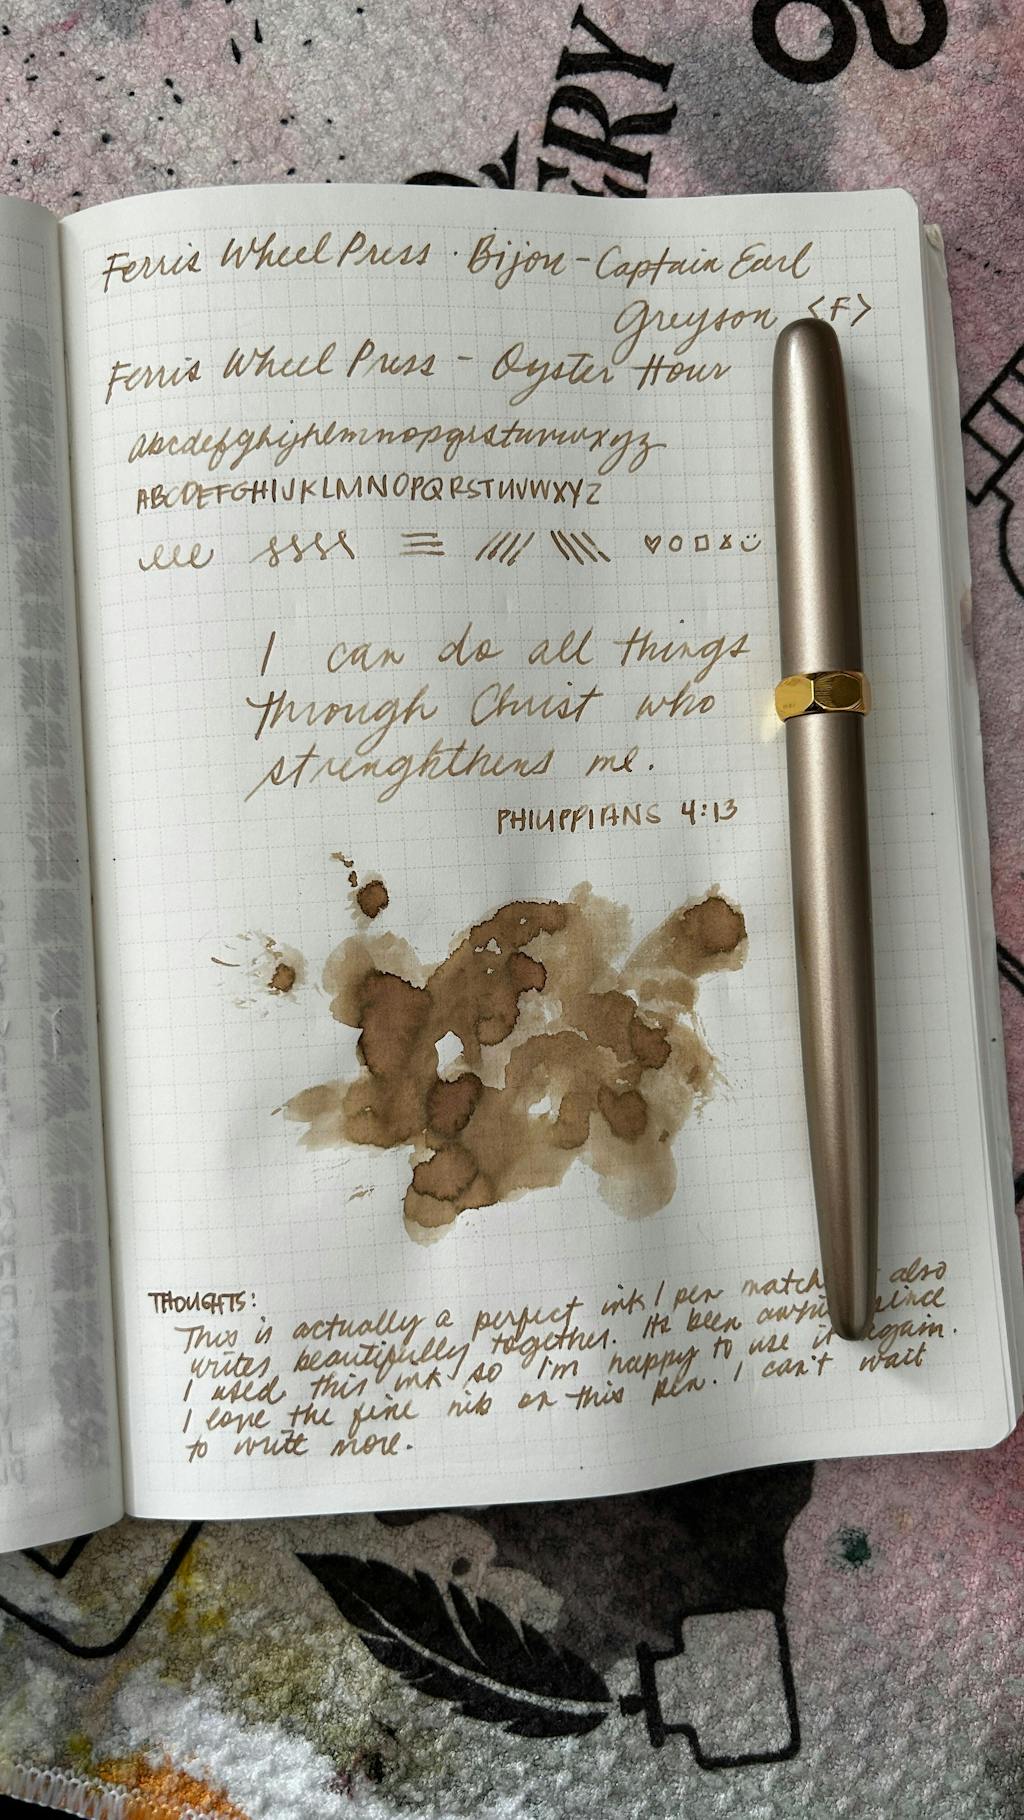 ERY
Ferris Wheel Press · Bijou - Captain Earl
Greyson <F>
Ferris Wheel Press - Oyster Hour
abcdefghijklmnopqrstuvwxyz
ABCDEFGHIJKLMNOPQRSTUVWXYZ
I can do all things
through Christ who
strenghthens me.
PHILIPPIANS 4:13
THOUGHTS:
This is actually a perfect ink / pen match also
writes beautifully together. Its been since
I used this ink so I'm happy to use it again.
I love the fine nib on this pen. I can't wait
to write more.